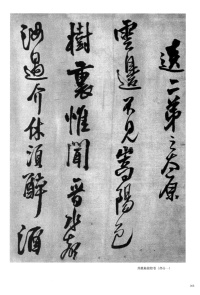 送二弟之太原
雲邊不見嵩陽色
樹裏惟聞晉水聲
過介休須醉酒